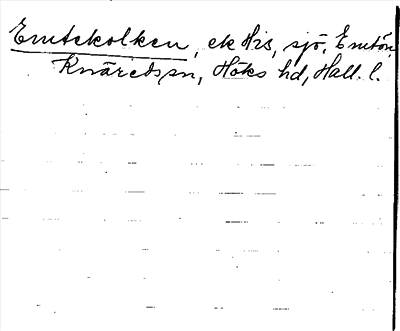 Emtekolken, ek His, sjö, Emtön,
Knäreds sn, Höks hd, Hall. l.